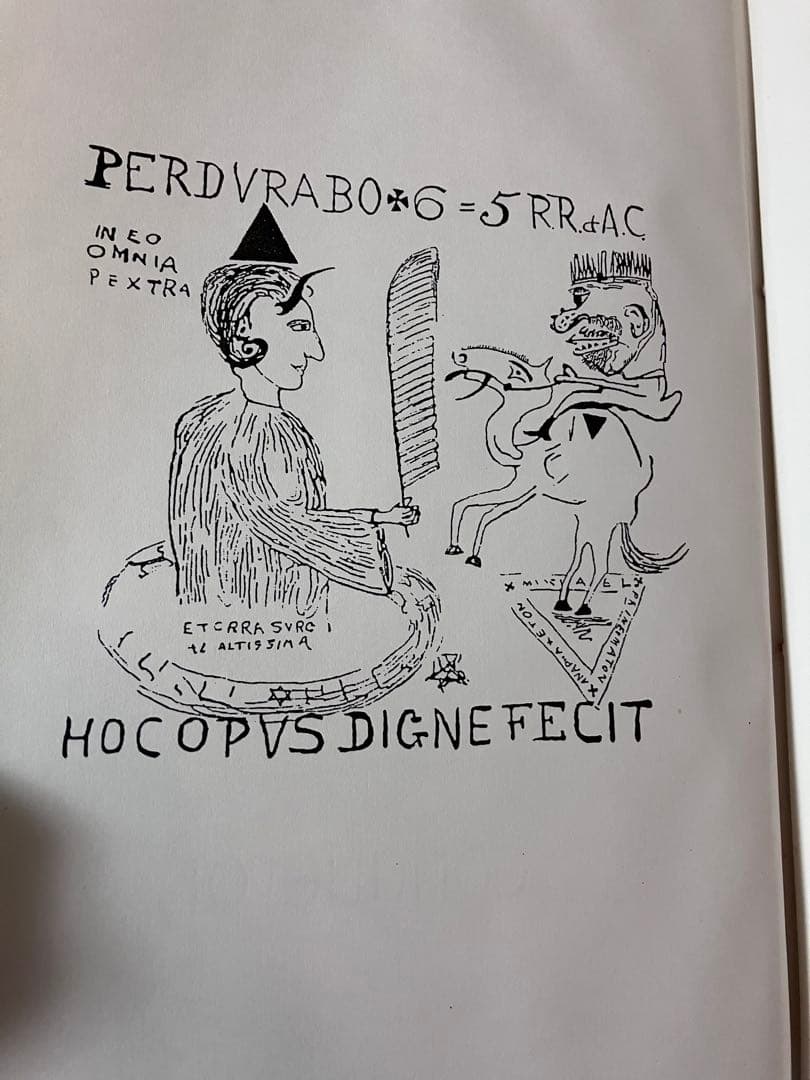 PERDVRABO✠6=5 R.R.et A.C.
IN EO
OMNIA
PEXTRA
ET CRRA SVRG I
ALTISSIMA
MICAEL
ANAPHAXETON
HOC OPVS DIGNE FECIT